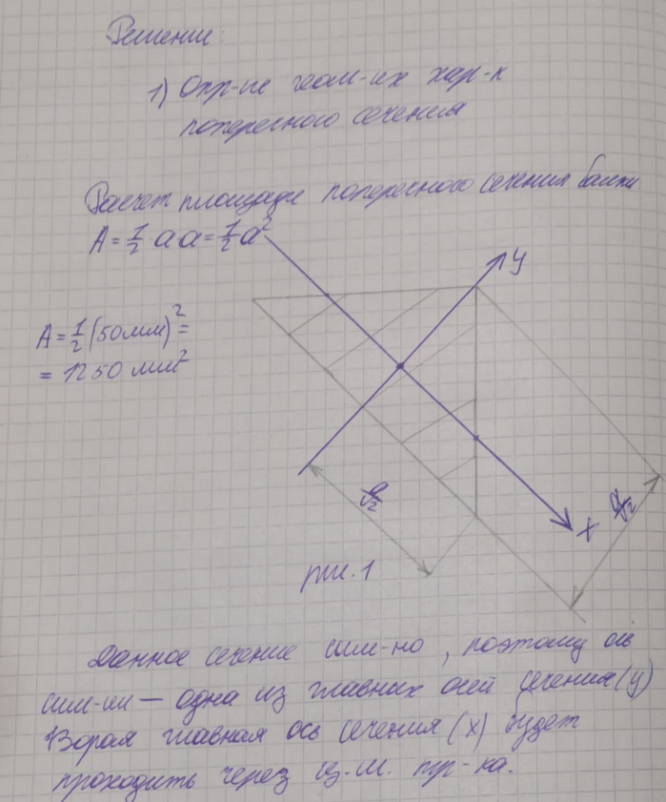 Решение:
1) Опр-ие геом-их хар-к
поперечного сечения
Расчет площади поперечного сечения балки
A = 1/2 · a a = 1/2 a²
A = 1/2 (50мм)² =
= 1250 мм²
y
a/√2
a/√2
x
рис. 1
Данное сечение сим-но, поэтому ось
сим-ии — одна из главных осей сечения (y)
Вторая главная ось сечения (x) будет
проходить через ц.м. тр-ка.